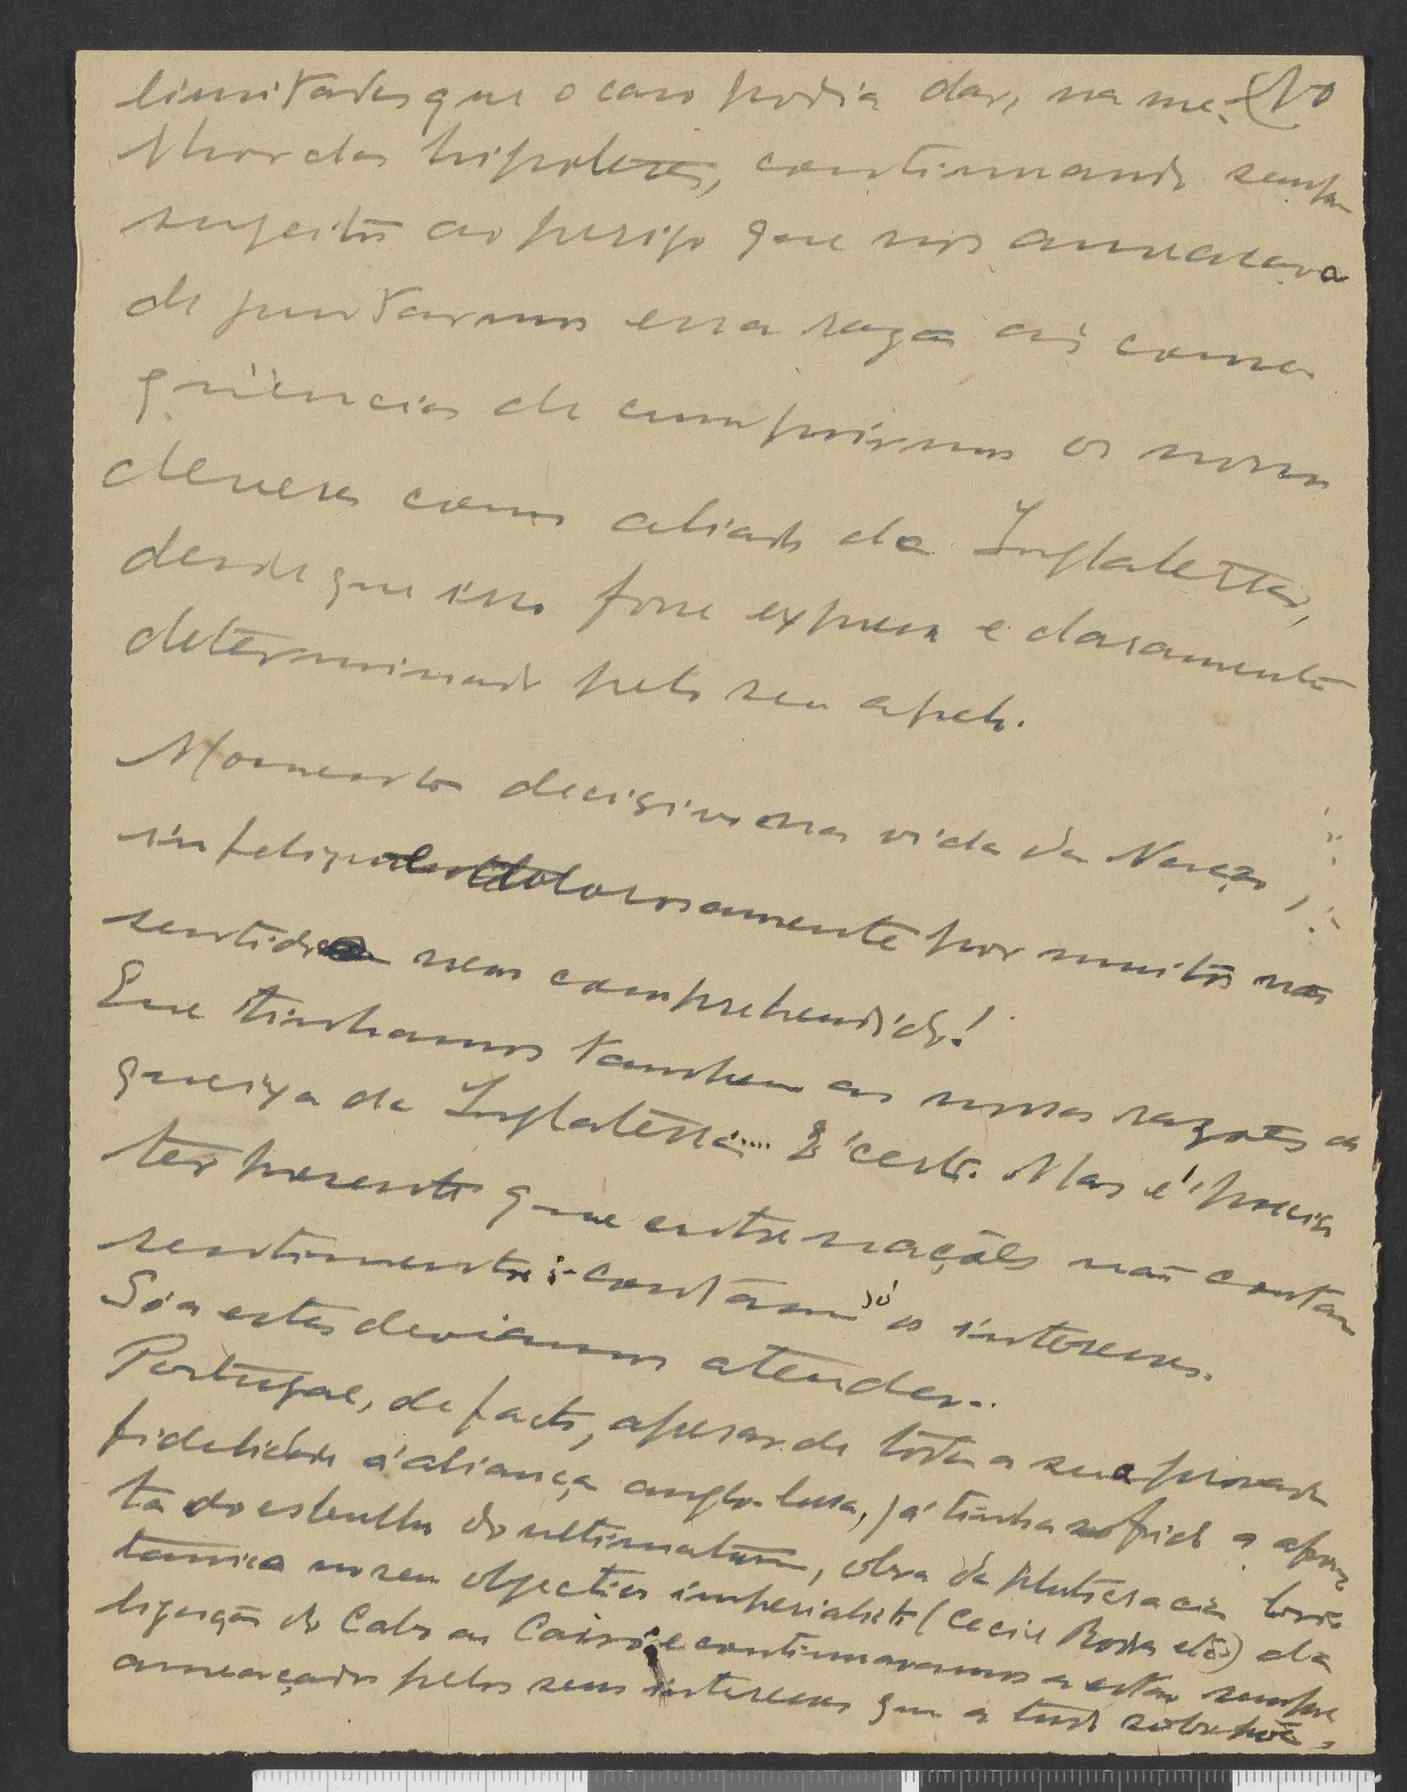 limitados que o caso podia dar, na me-
lhor das hipoteses, continuando sempre
sugeitos ao perigo que nos ameaçava
de juntarmos essa razão ás conse
qüencias de cumprirmos os nossos
deveres como aliados da Inglaterra,
desde que isso fosse expressa e claramente
determinado pelo seu apelo.
Momento decisivo na vida da Nação,
infelizmente dolorosamente por muitos não
sentido nem comprehendido!
Que tinhamos tambem as nossas razões de
queixa da Inglaterra.... É certo. Mas é preciso
ter presente que entre nações não contam
sentimentos: contam só os interesses.
Só a estes deviamos atender..
Portugal, de facto, apesar de toda a sua provada
fidelidade á aliança anglo-lusa, já tinha sofrido a afron
ta do esbulho do ultimatum, obra da plutocracia bri
tanica no seu objectivo imperialista (Cecil Rodes etc.) da
ligação do Cabo ao Cairo e continuavamos a estar sempre
ameaçados pelos seus interesses que a tudo sobrepõe.